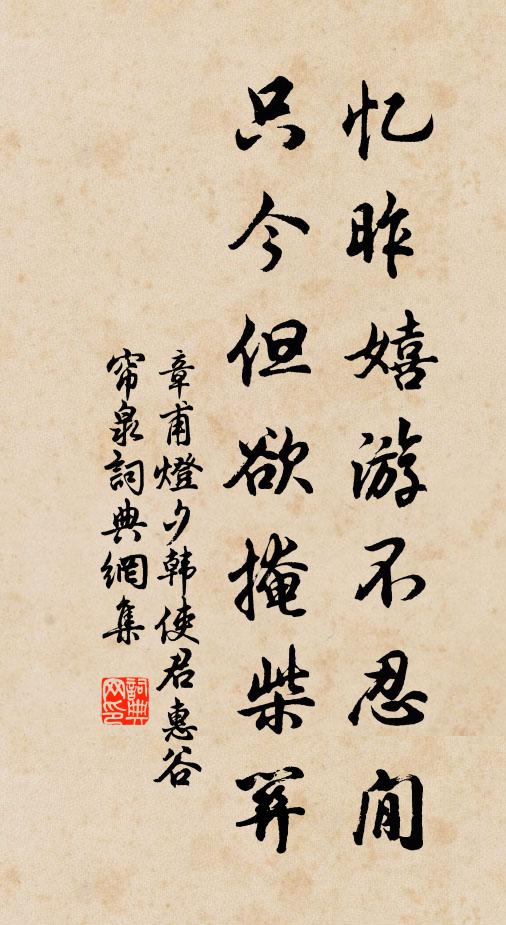 忆昨嬉游不忍閒
只今但欲掩柴関
章甫燈夕韩使君惠谷
帘泉詞典網集
詞典网印